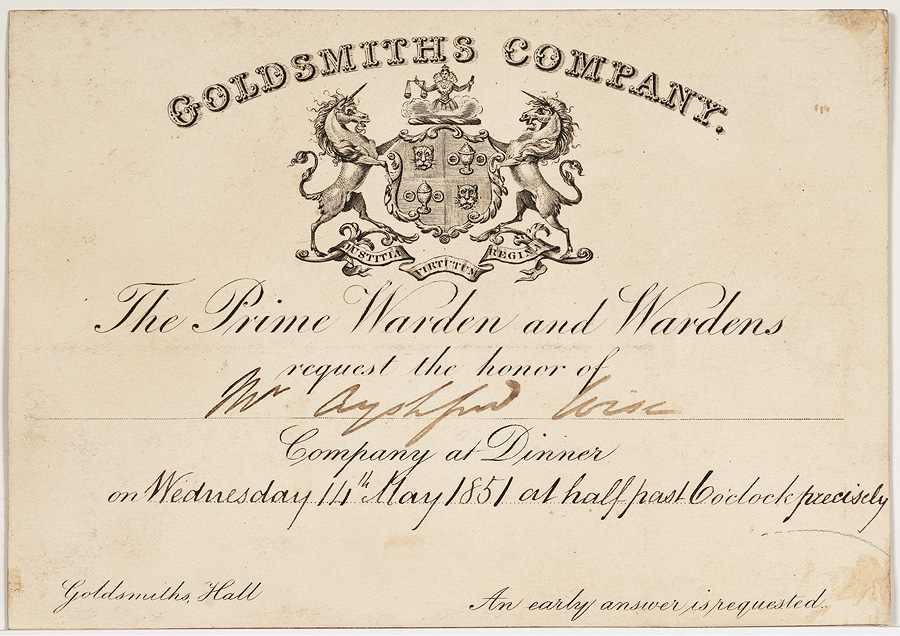 GOLDSMITHS COMPANY.
JUSTITIA VIRTUTUM REGINA
The Prime Warden and Wardens
request the honor of
Mr Ayshford Wise
Company at Dinner
on Wednesday 14th May 1851 at half past 6 o'clock precisely
Goldsmiths, Hall
An early answer is requested.